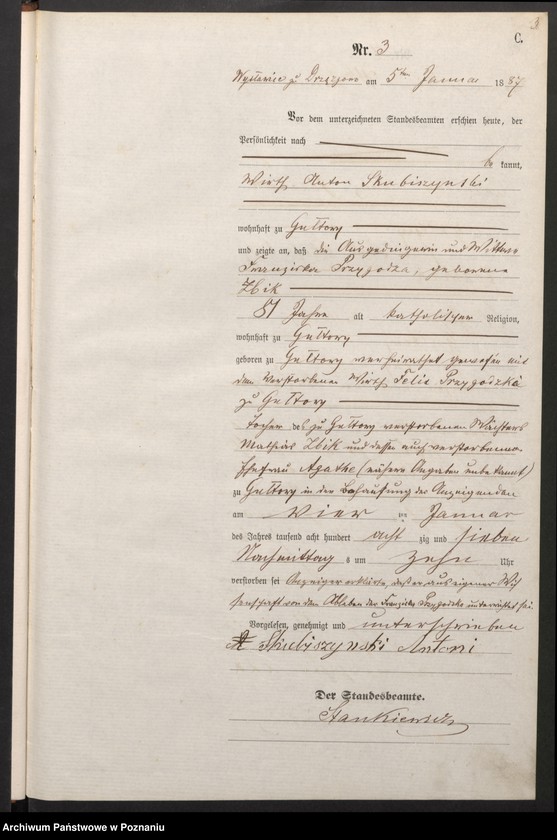 C.
Nr. 3
am 5ten Januar 1887
Vor dem unterzeichneten Standesbeamten erschien heute, der
Persönlichkeit nach
be kannt,
Wirth Anton Skubiszynski
wohnhaft zu Gultowy
und zeigte an, daß die Ausgedingerin und Wittwe
Franziska Przygodzka, geborene
Zbik
81 Jahre alt katholischer Religion,
wohnhaft zu Gultowy
geboren zu Gultowy verheirathet gewesen mit
dem verstorbenen Wirth Felix Przygodzki
zu Gultowy
Tochter des zu Gultowy verstorbenen
Mathias Zbik und dessen auch verstorbenen
Ehefrau Agathe (nähere Angaben unbekannt)
zu Gultowy in der Behausung des Anzeigenden
am vier ten Januar
des Jahres tausend acht hundert acht zig und sieben
Nachmittag s um zehn Uhr
verstorben sei Anzeiger erklärte, daß er aus eigener Wis
senschaft von dem Ableben der Franziska Przygodzka unterrichtet sei.
Vorgelesen, genehmigt und unterschrieben
Skubiszynski Antoni
Der Standesbeamte.
Stankiewicz
Archiwum Państwowe w Poznaniu